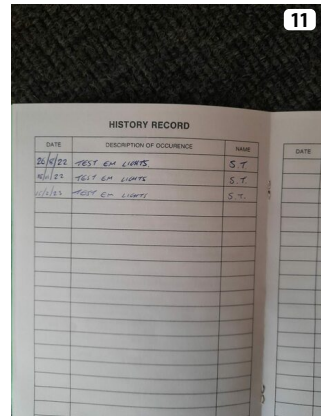 11
HISTORY RECORD
DATE DESCRIPTION OF OCCURENCE NAME DATE
20/8/22 TEST EM LIGHTS S.T.
TEST EM LIGHTS S.T.
TEST EM LIGHTS S.T.